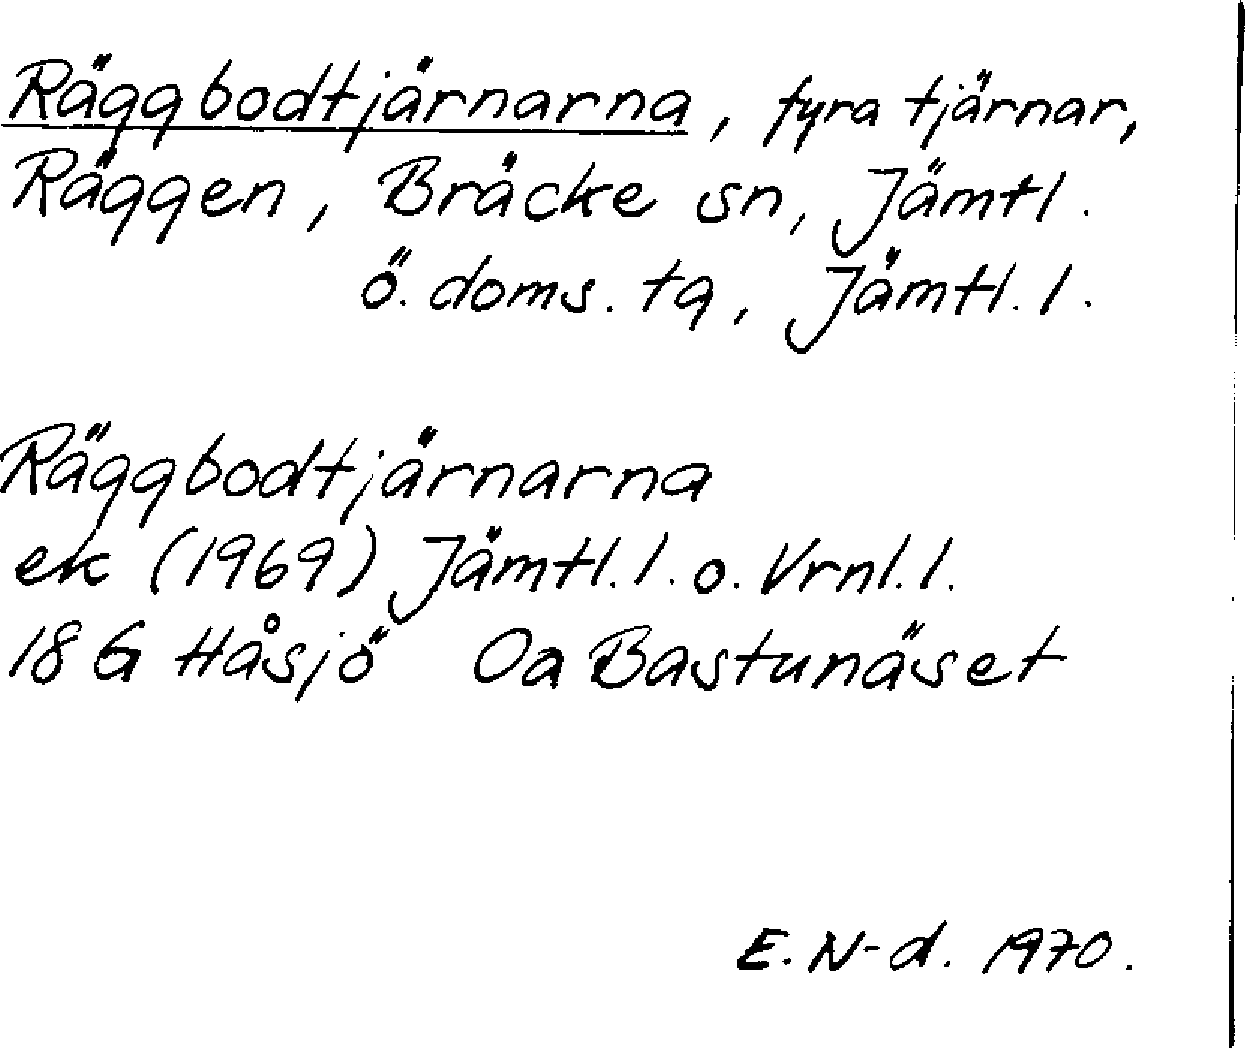 Räggbodtjärnarna, fyra tjärnar,
Räggen, Bräcke sn, Jämtl.
ö. doms. tg, Jämtl. l.
Räggbodtjärnarna
ek (1969) Jämtl. l. o. Vrnl. l.
18 G Håsjö Oa Bastunäset
E. N-d. 1970.